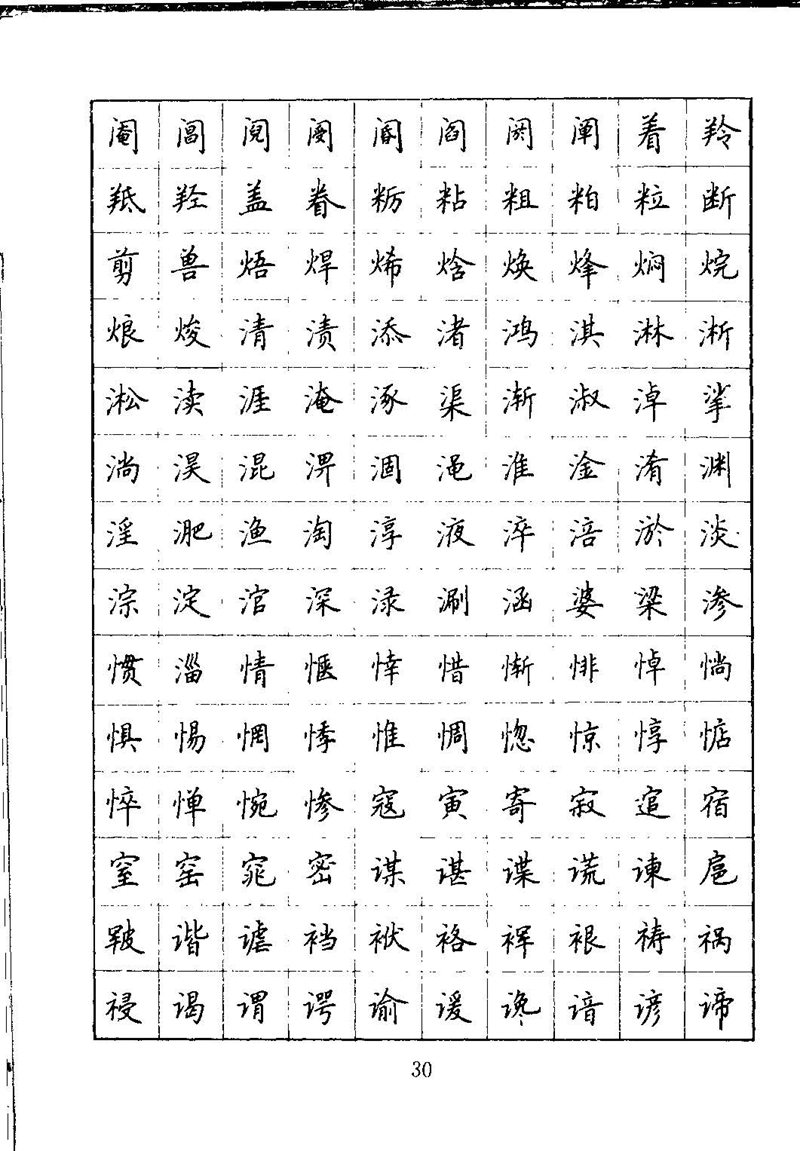 阉 阊 阋 阌 阍 阎 阏 阐 着 羚
羝 羟 盖 眷 粝 粘 粗 粕 粒 断
剪 兽 焐 焊 烯 焓 焕 烽 焖 烷
烺 焌 清 渍 添 渚 鸿 淇 淋 淅
淞 渎 涯 淹 涿 渠 渐 淑 淖 挲
淌 淏 混 淠 涸 渑 淮 淦 淆 渊
淫 淝 渔 淘 淳 液 淬 涪 淤 淡
淙 淀 涫 深 渌 涮 涵 婆 梁 渗
惯 淄 情 惬 悻 惜 惭 悱 悼 惝
惧 惕 惘 悸 惟 惆 惚 惊 惇 惦
悴 惮 惋 惨 寇 寅 寄 寂 逭 宿
窒 窑 窕 密 谋 谌 谍 谎 谏 扈
皲 谐 谑 裆 袱 袼 裈 裉 祷 祸
祲 谒 谓 谔 谕 谖 谗 谙 谚 谛
30